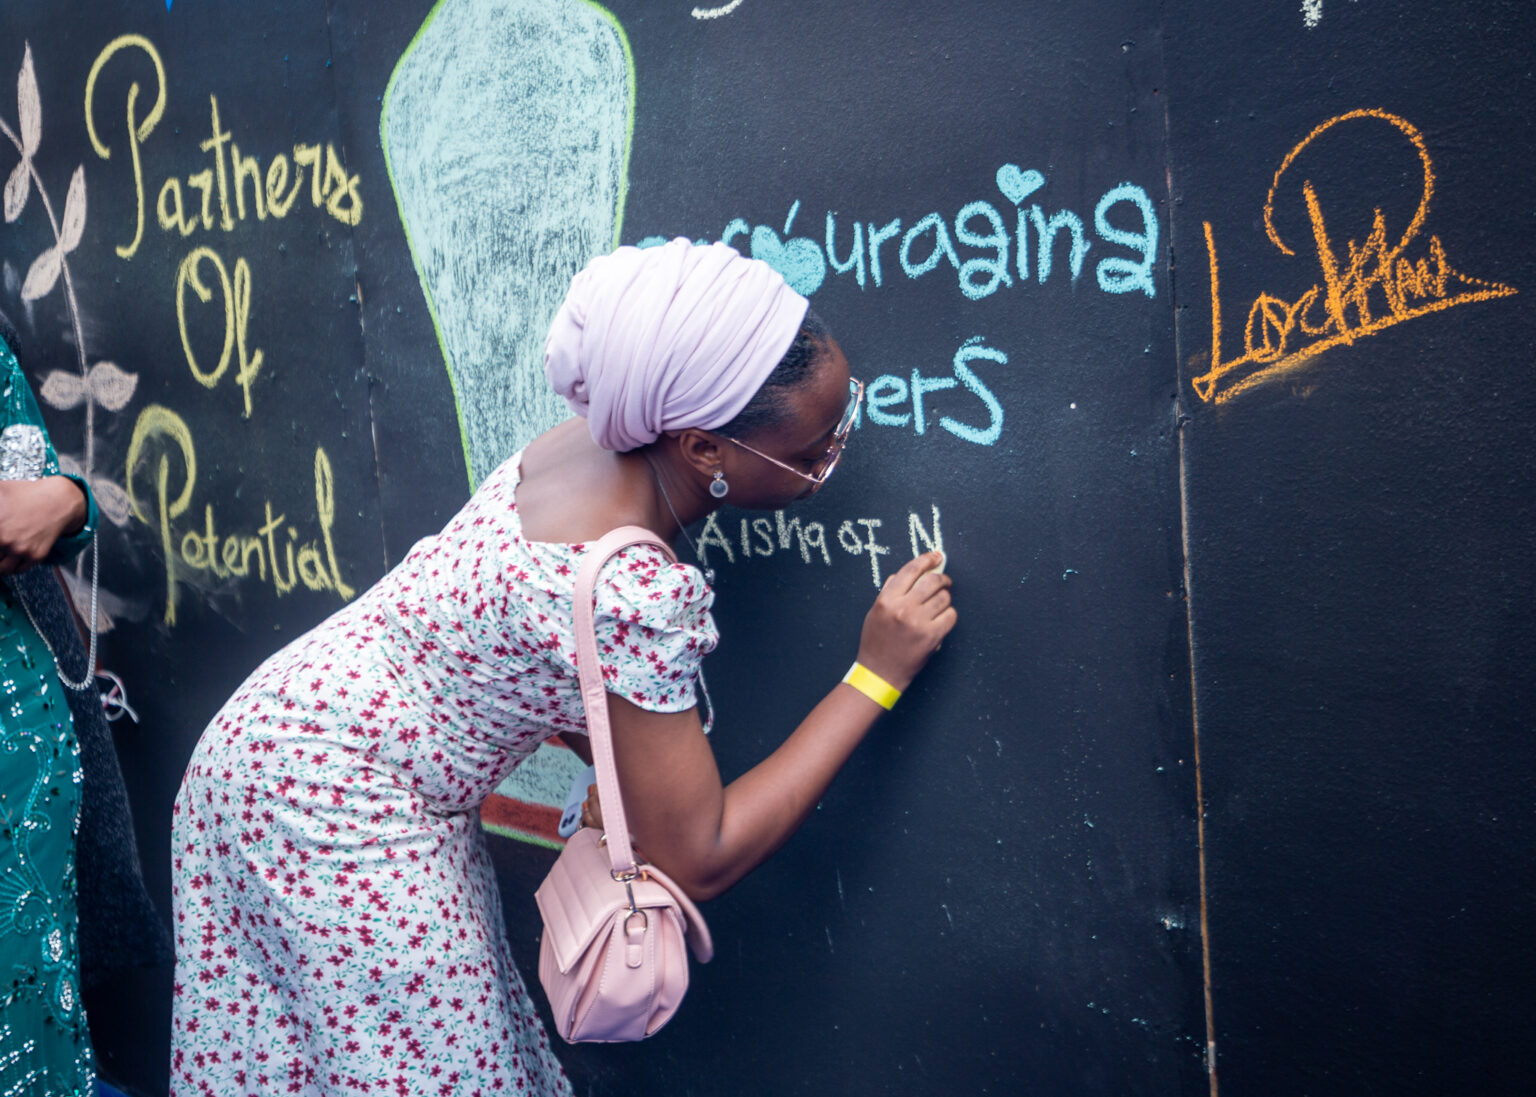 Partners
Of
Potential
couraging
ers
Aisha of N